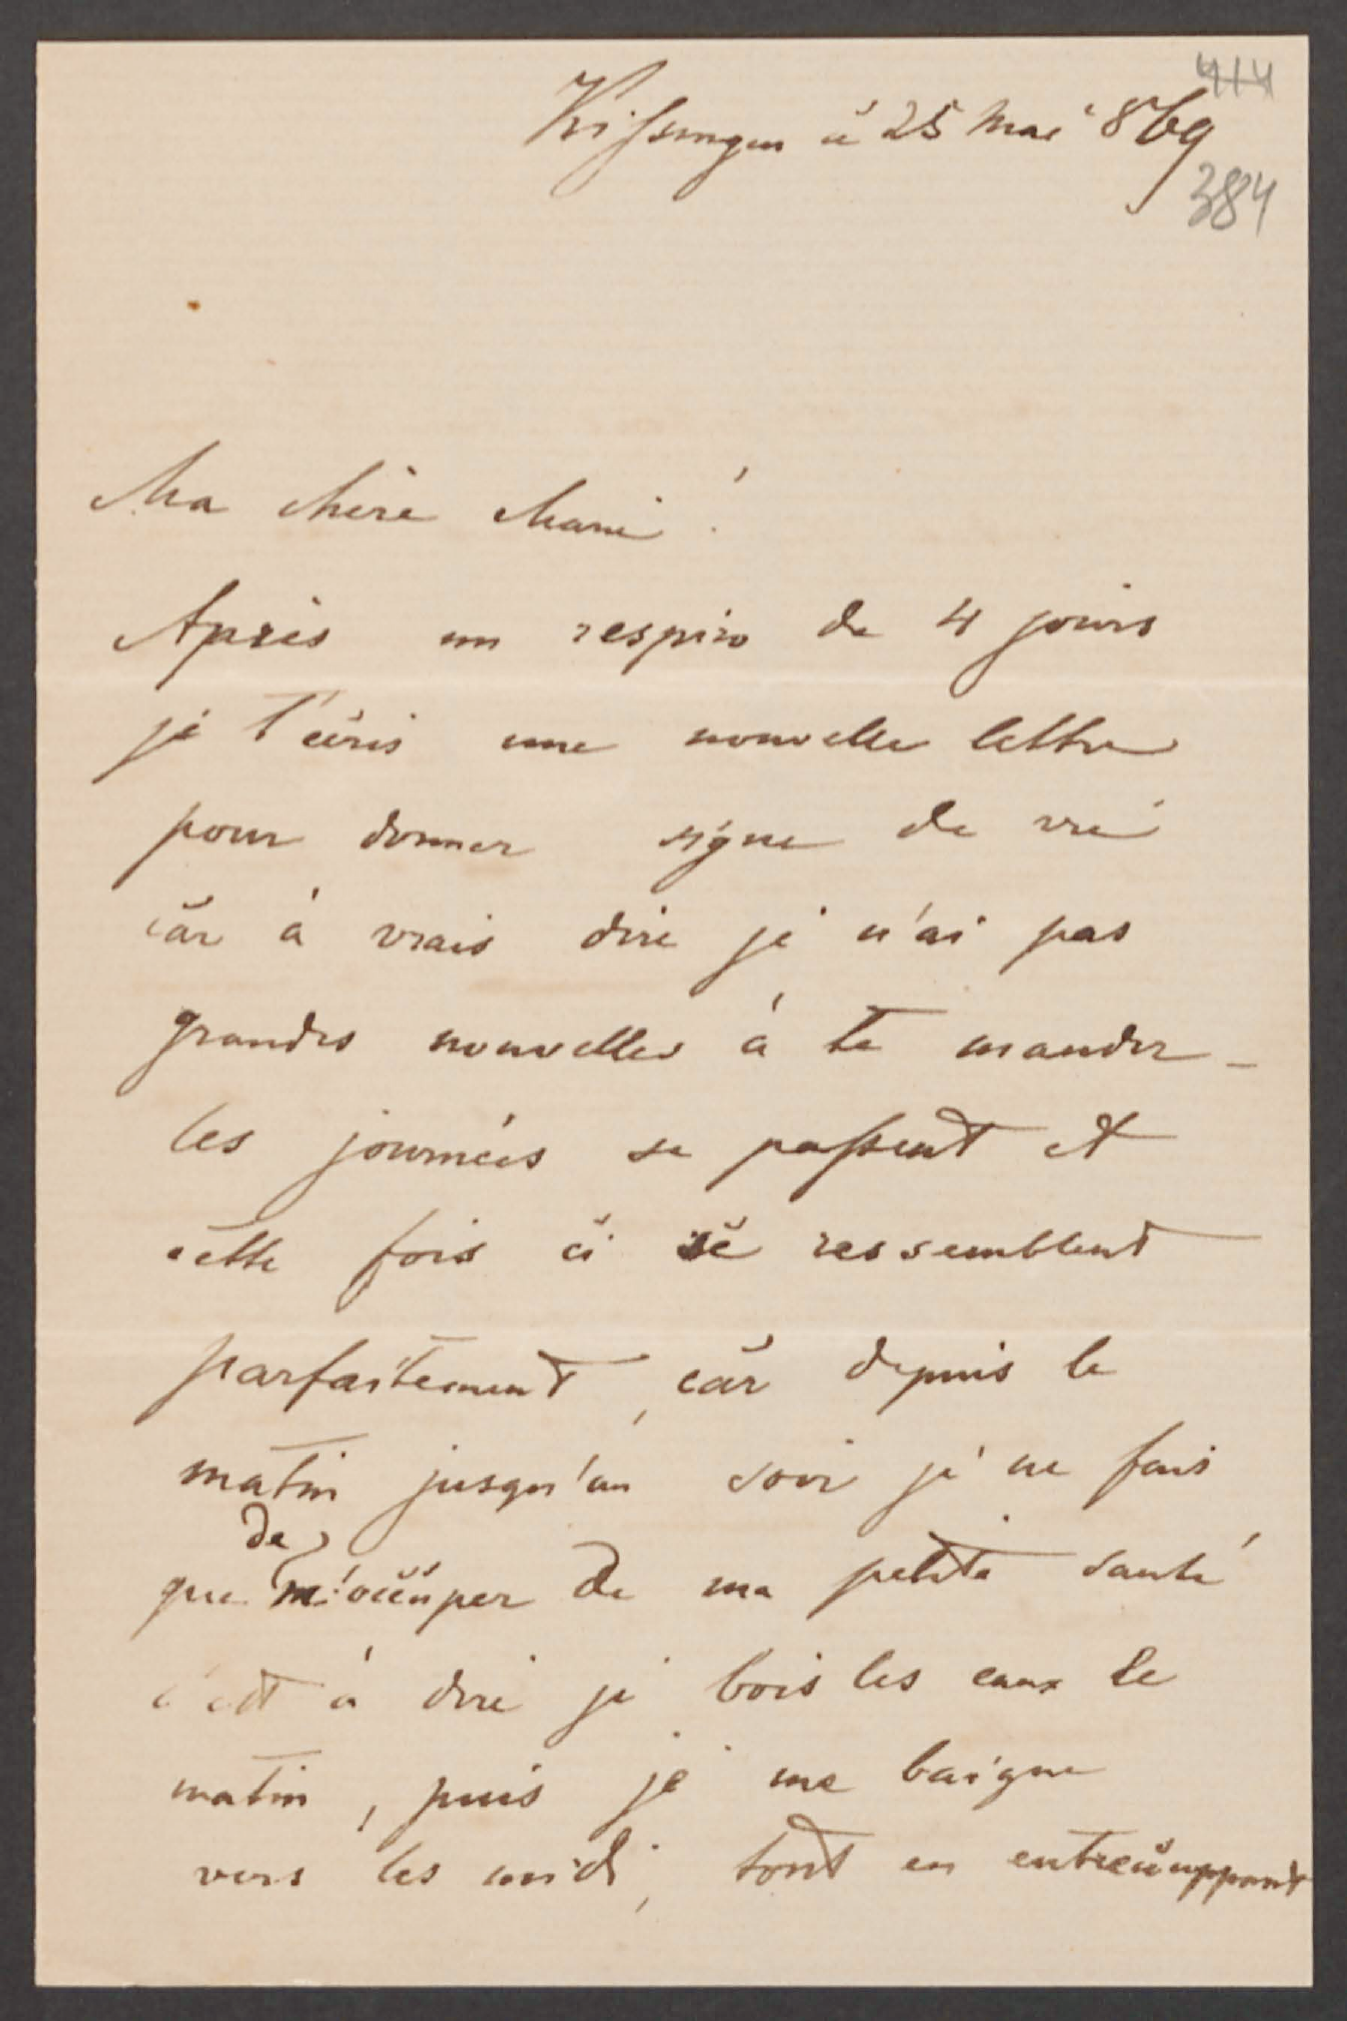 414
Kissingen ce 25 Mai 869
384
Ma chère Marie!
Après un respiro de 4 jours
je t'écris une nouvelle lettre
pour donner signe de vie
car à vrais dire je n'ai pas
grandes nouvelles à te mander –
les journées se passent et
cette fois ci se ressemblent
parfaitement, car depuis le
matin jusqu'au soir je ne fais
de
que m'occuper de ma petite santé
c'est à dire je bois les eaux le
matin, puis je me baigne
vers les midi, tout en entrecouppant